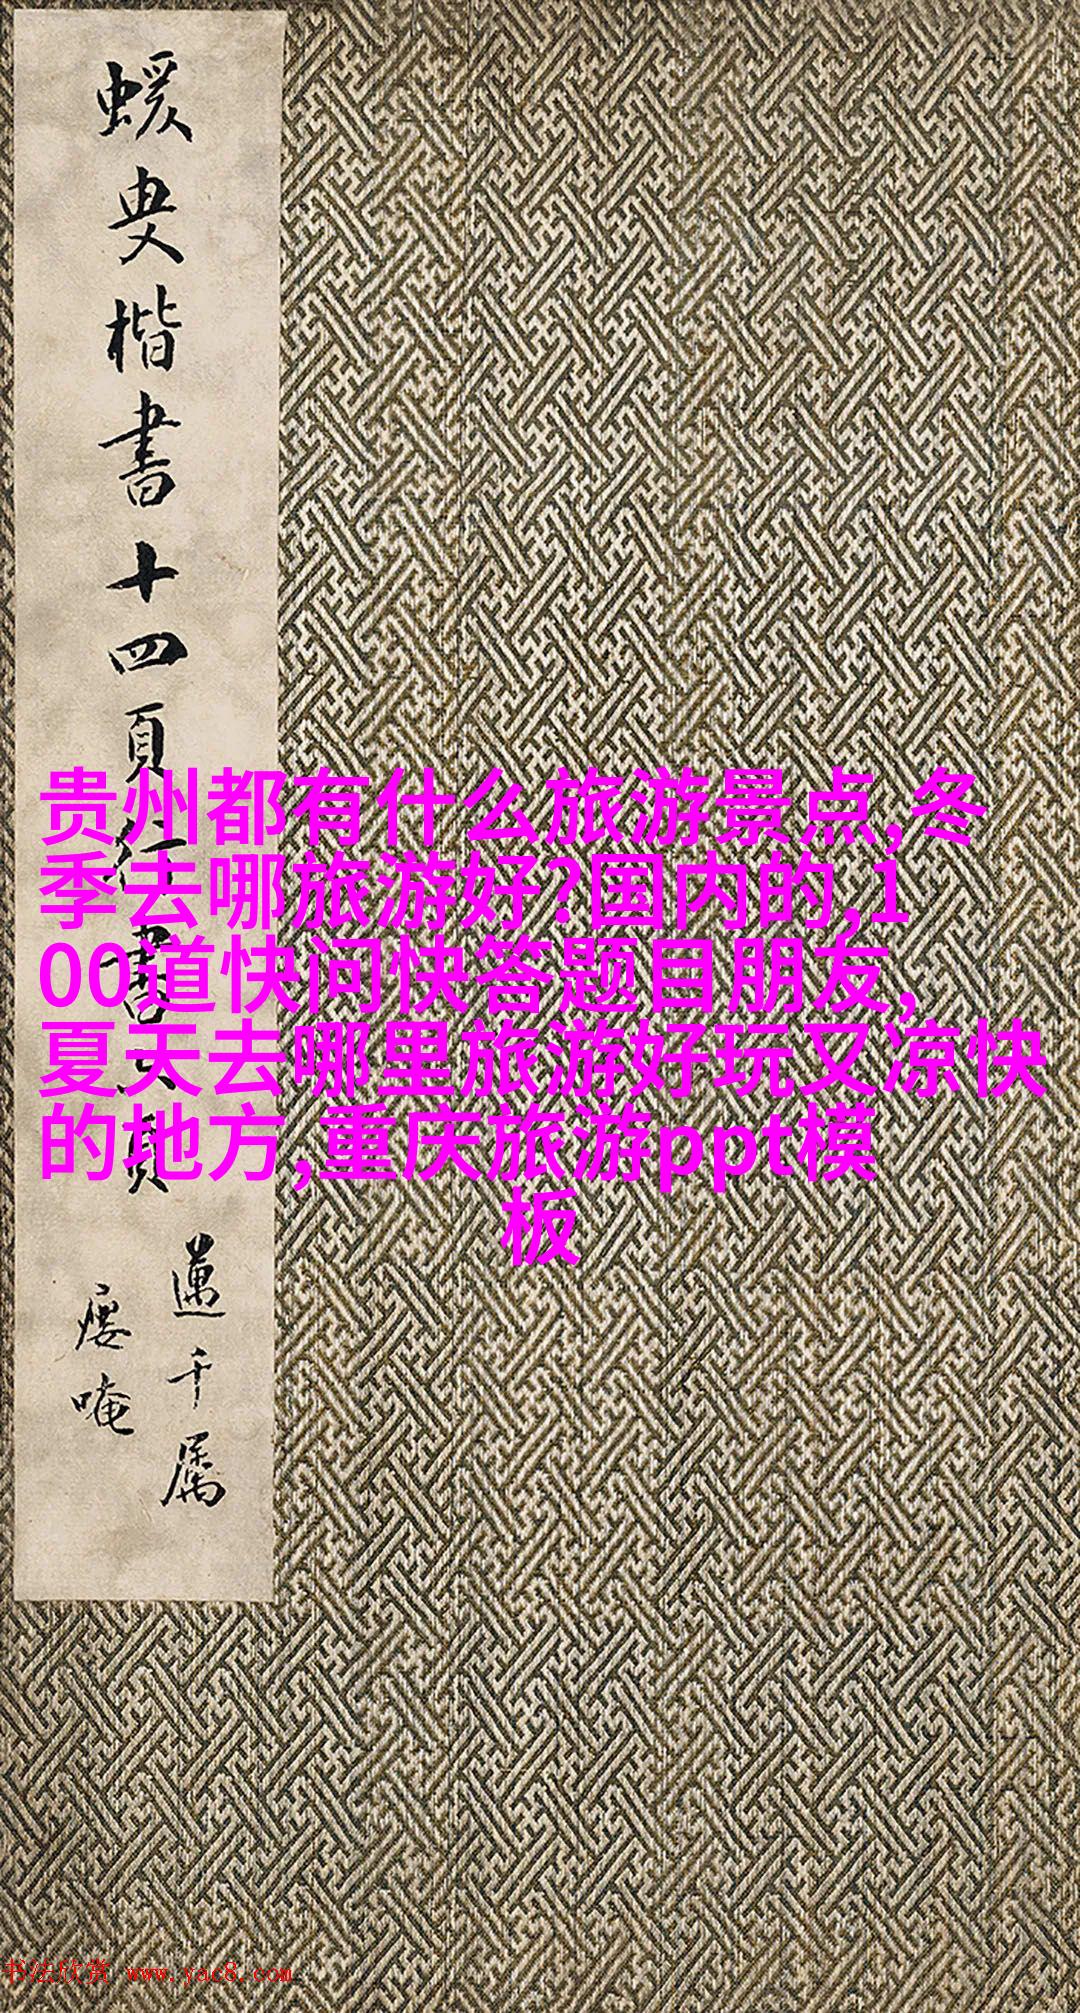 蝯叟楷書十四頁行書六頁
蘧千属
廔唵
贵州都有什么旅游景点,冬
季去哪旅游好?国内的,1
00道快问快答题目朋友,
夏天去哪里旅游好玩又凉快
的地方,重庆旅游ppt模
板
书法欣赏 www.yac8.com